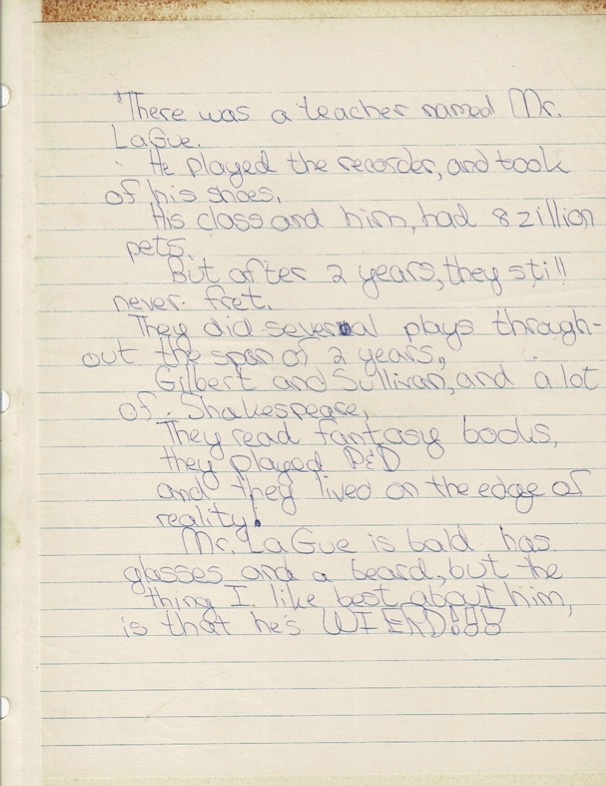 "There was a teacher named Mr.
LaGue.
He played the recorder, and took
of his shoes.
His class and him, had 8 zillion
pets.
But after 2 years, they still
never fret.
They did several plays through-
out the span of 2 years,
Gilbert and Sullivan, and a lot
of Shakespeare,
They read fantasy books,
they played D&D
and they lived on the edge of
reality!
Mr. LaGue is bald has
glasses and a beard, but the
thing I like best about him,
is that he's WIERD!!!